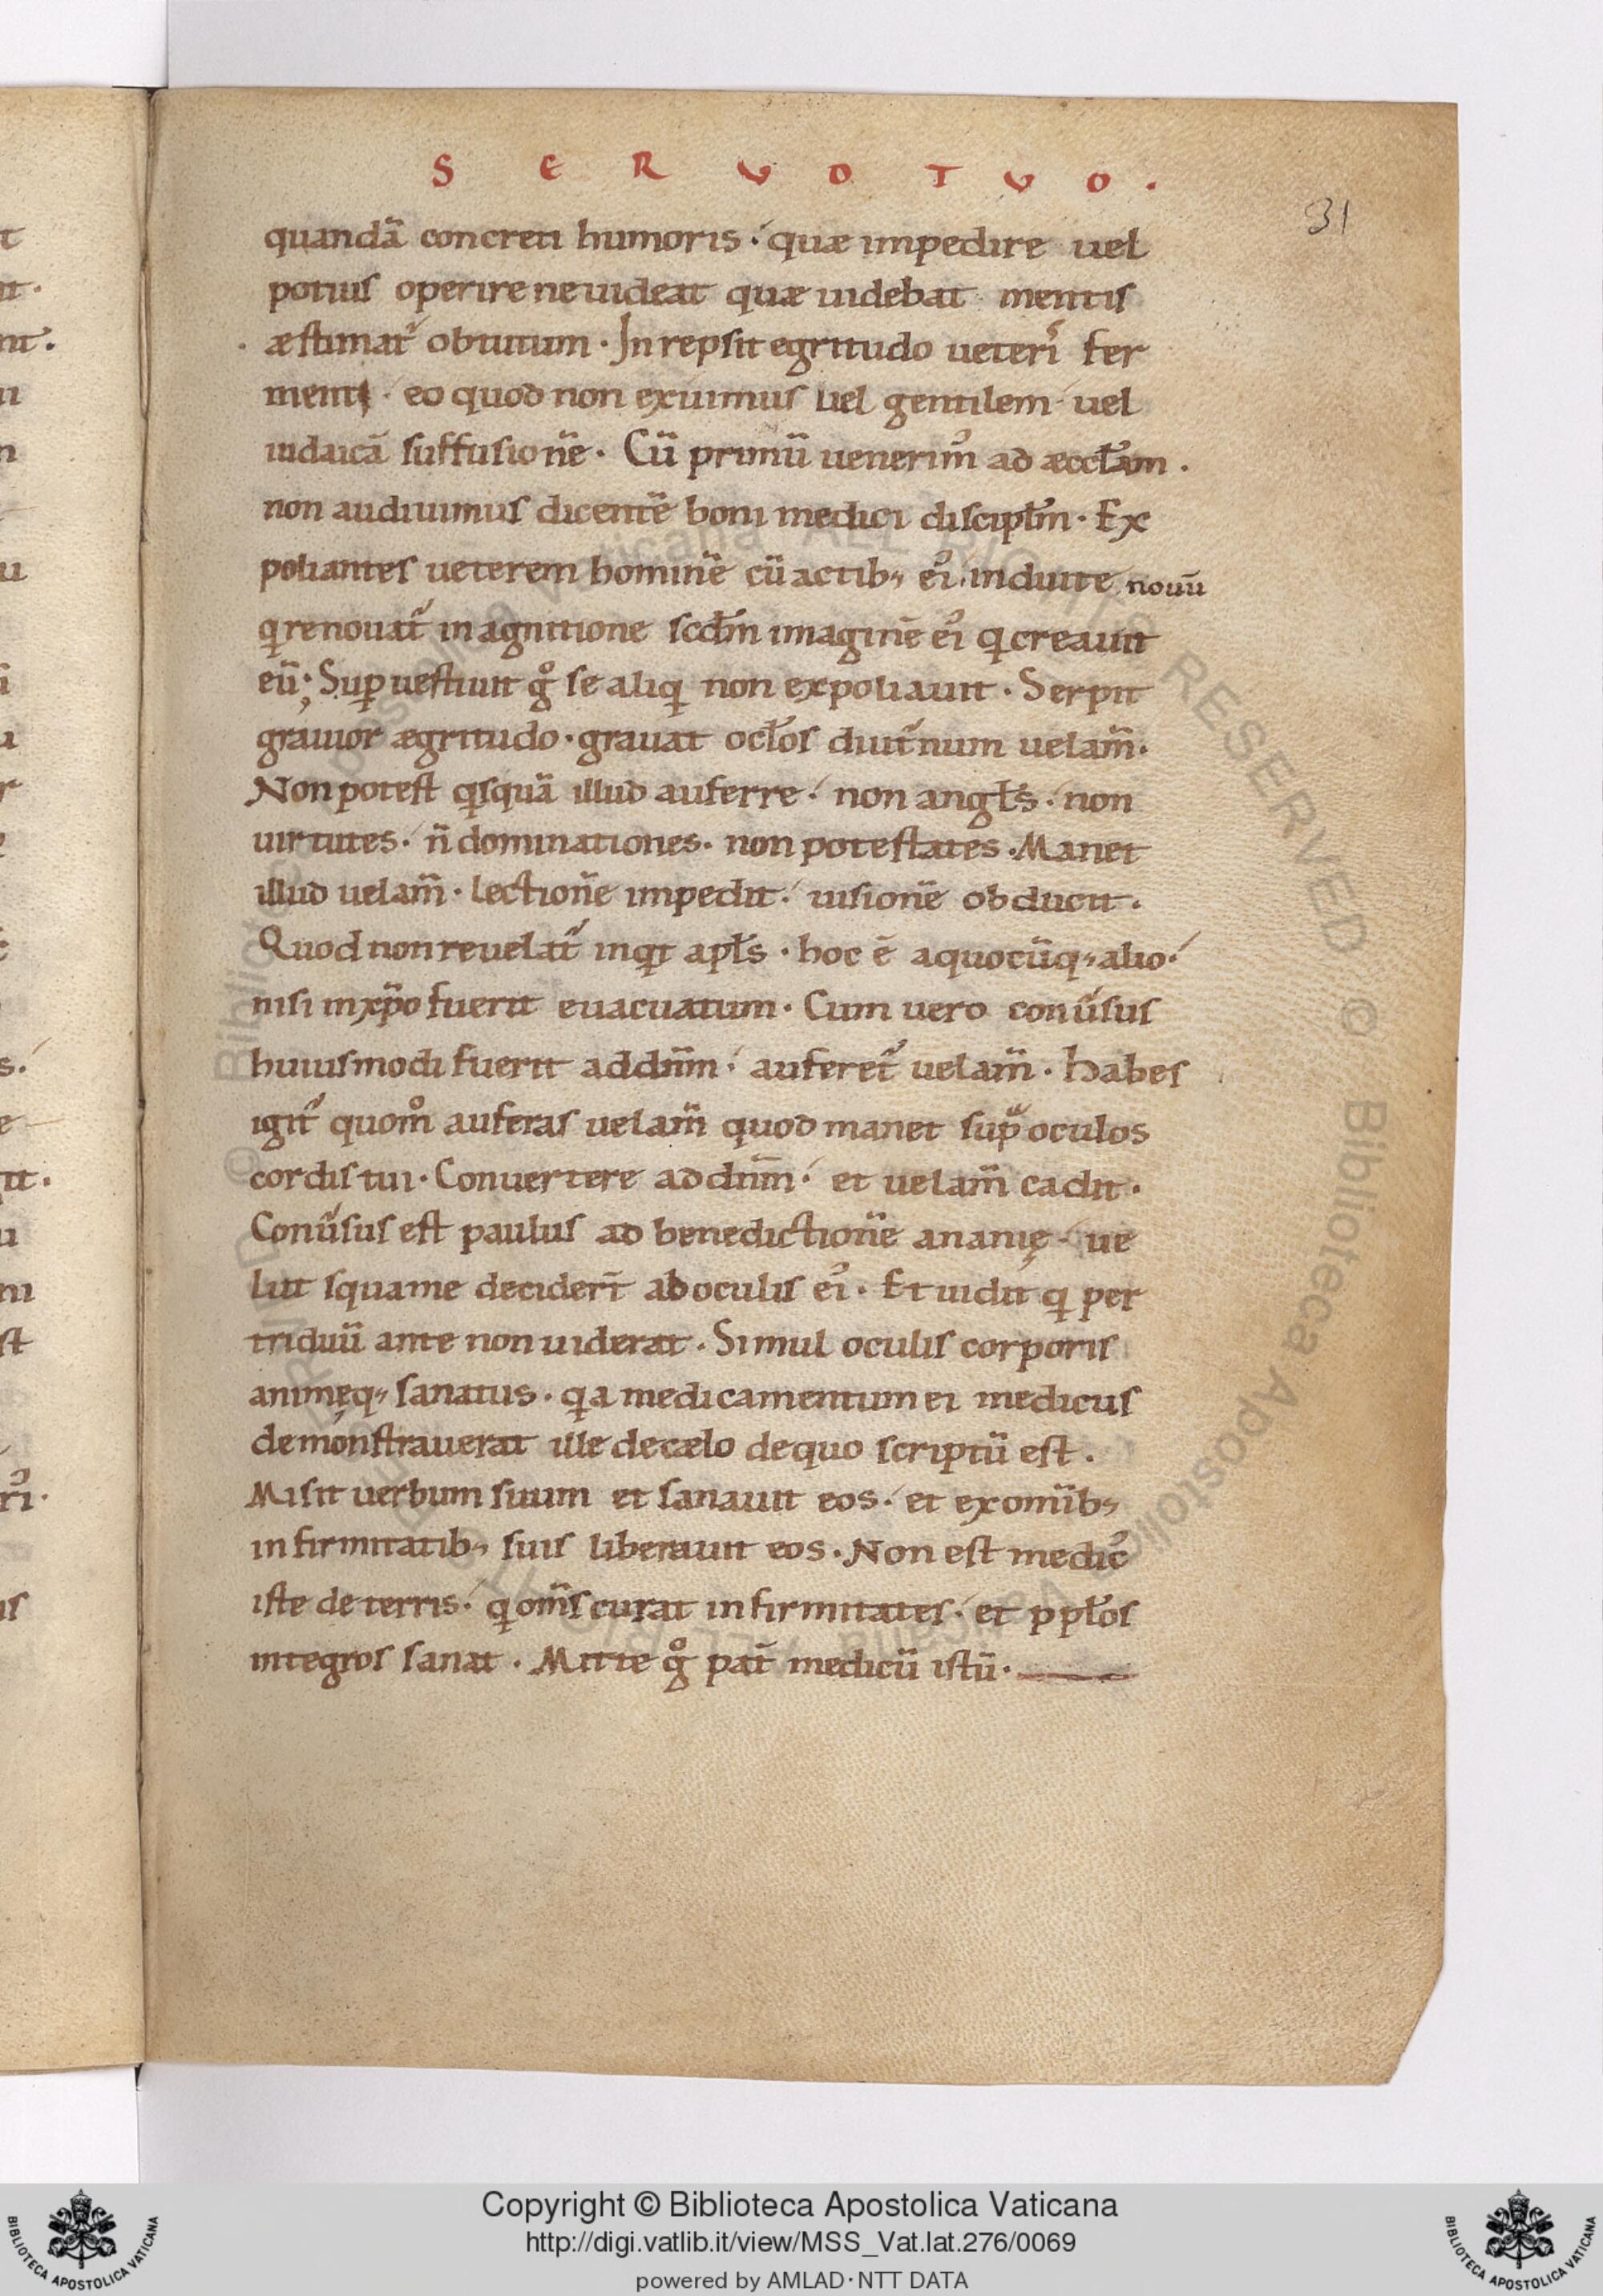 S E R V O T V O .
31
quandā concreti humoris · quæ impedire uel
potius operire ne uideat quæ uidebat mentis
æstimat᷑ obtutum · Inrepsit egritudo ueterıs̉ fer
menti · eo quod non exuimus uel gentilem uel
iudaicā suffusionē · Cū primū uenerimꝰ ad æccl̄am ·
non audiuimus dicentē boni medici discipl̄m · Ex
poliantes ueterem hominē cū actib; eiꝰ · induite nouū
q̇ renouat᷑ in agnitione scd̄m imaginē eiꝰ q̇ creauit
eū; Suꝑuestiuit gͦ se aliq̇ non expoliauit · Serpit
grauior ægritudo · grauat ocl̄os diut᷑num uelam̄ ·
Non potest q̇squā illud auferre · non angl̄s · non
uirtutes · n̄ dominationes · non potestates · Manet
illud uelam̄ · lectionē impedit · uisionē obducit ·
Quod non reuelat᷑ inq̇t apl̄s · hoc ē a quocūq; alio ·
nisi in xp̄o fuerit euacuatum · Cum uero conu᷑sus
huiusmodi fuerit ad dn̄m · auferet᷑ uelam̄ · Habes
igit᷑ quom̊ auferas uelam̄ quod manet sup̄ oculos
cordis tui · Conuertere ad dn̄m · et uelam̄ cadit ·
Conu᷑sus est paulus ad benedictionē ananię · ue
lut squame decider̄t ab oculis eiꝰ · Et uidit q̇ per
triduū ante non uiderat · Simul oculis corporis
animęq; sanatus · q̇a medicamentum ei medicus
demonstrauerat ille de cælo de quo scriptū est ·
Misit uerbum suum et sanauit eos · et ex omīb;
infirmitatib; suis liberauit eos · Non est medicꝰ
iste de terris · q̇ om̄s curat infirmitates · et p ppl̄os
integros sanat · Mitte gͦ pat̄ medicū istū ·
Copyright © Biblioteca Apostolica Vaticana
http://digi.vatlib.it/view/MSS_Vat.lat.276/0069
powered by AMLAD·NTT DATA
BIBLIOTECA APOSTOLICA VATICANA
BIBLIOTECA APOSTOLICA VATICANA